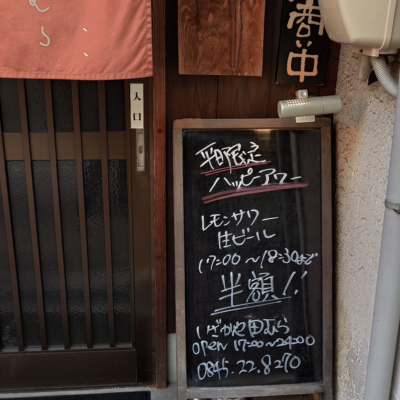 むら
入口
商い中
平日限定
ハッピーアワー
レモンサワー
生ビール
17:00～18:30まで
半額!!
いざかや田むら
open 17:00～24:00
0845.22.8270